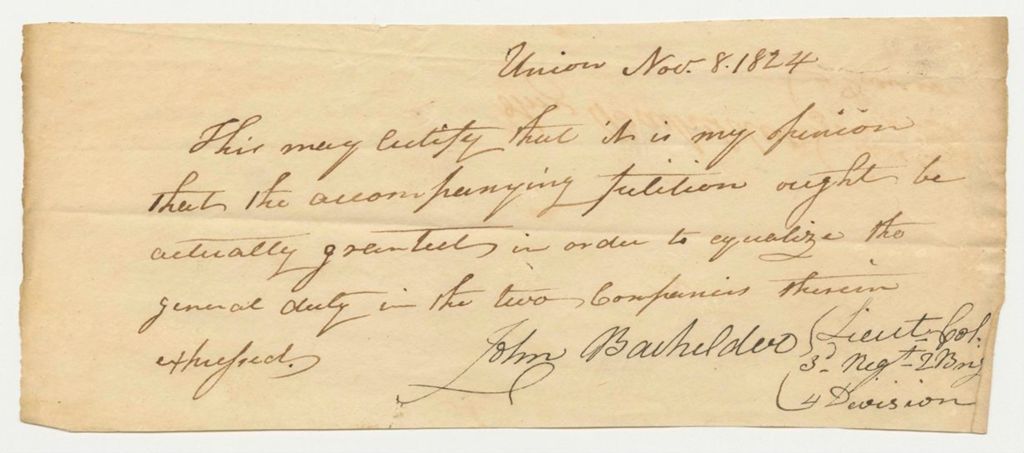 Union Nov. 8. 1824
This may certify that it is my opinion
that the accompanying petition ought be
actually granted in order to equalize the
general duty in the two Companies therein
expressed.
John Bachelder { Lieut. Col.
3d Regt 2 Brig
4 Division